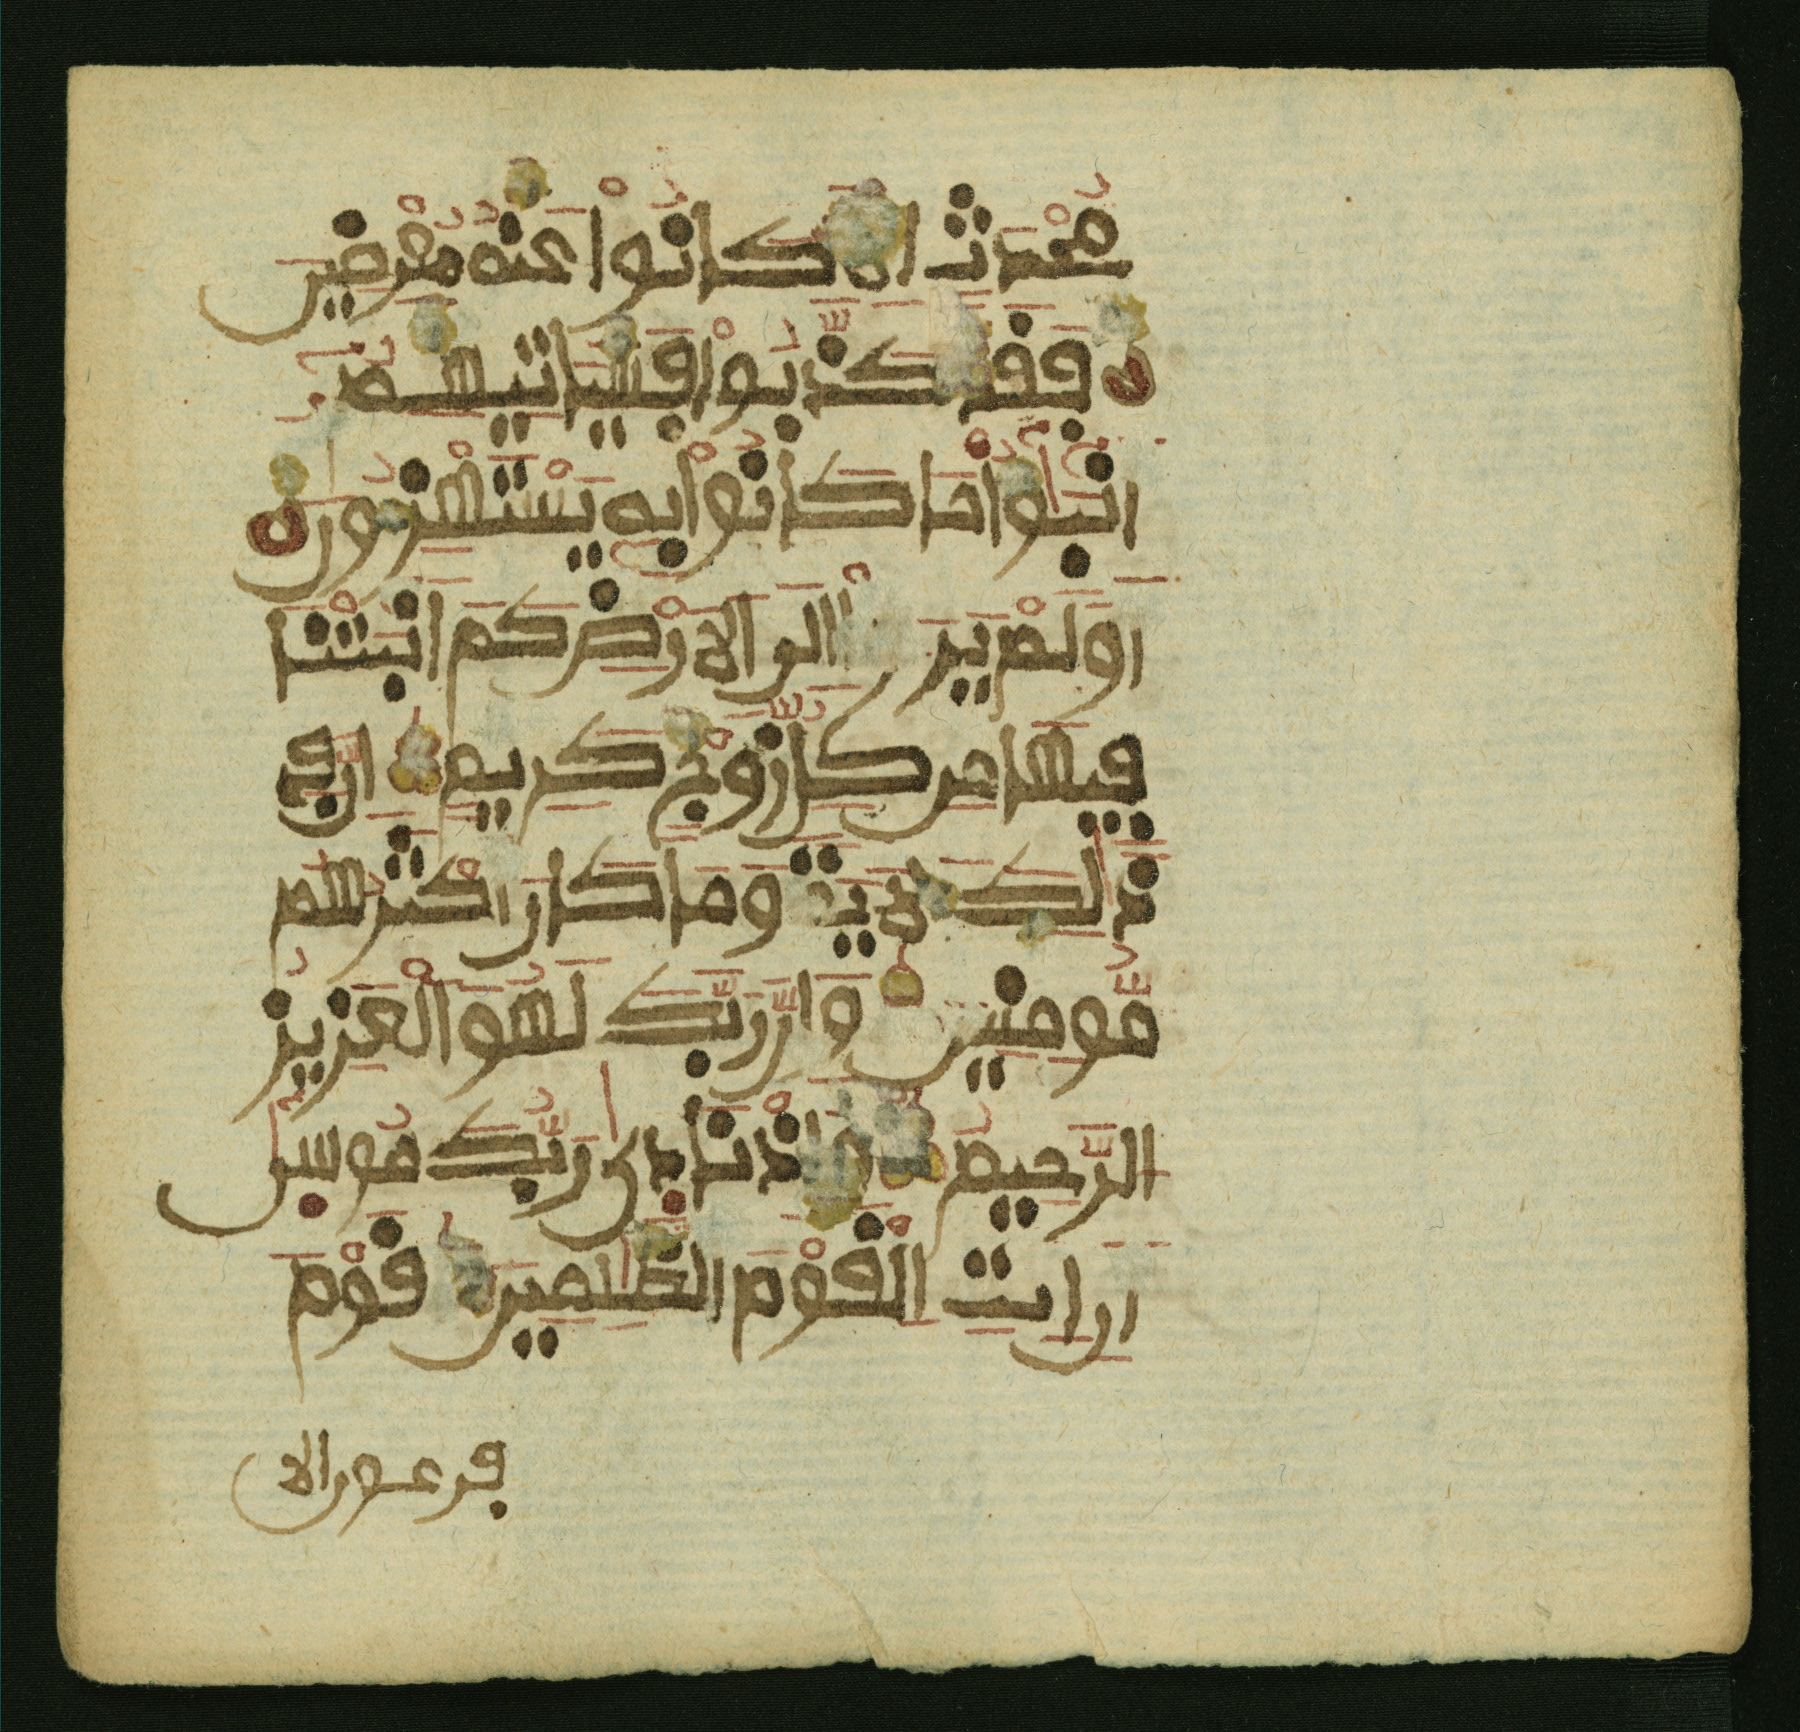 مُحْدَثٍ اِلَّا كَانُوا عَنْهُ مُعْرِضِينَ
فَقَدْ كَذَّبُوا فَسَيَاتِيهِمُ
أَنْبَٰٓؤُا مَا كَانُوا بِهِ يَسْتَهْزِءُونَ
أَوَلَمْ يَرَوِاْ الَى الاَرْضِ كَمَ اَنْبَتْنَا
فِيهَا مِن كُلِّ زَوْجٍ كَرِيمٍ اِنَّ فِي
ذَٰلِكَ لَأَيَةً وَمَا كَانَ أَكْثَرُهُم
مُّومِنِينَ وَإِنَّ رَبَّكَ لَهُوَ الْعَزِيزُ
الرَّحِيمُ وَإِذْ نَادَىٰ رَبُّكَ مُوسَىٰ
أَنِ اِيتِ الْقَوْمَ الظَّٰلِمِينَ قَوْمَ
فرعون الا